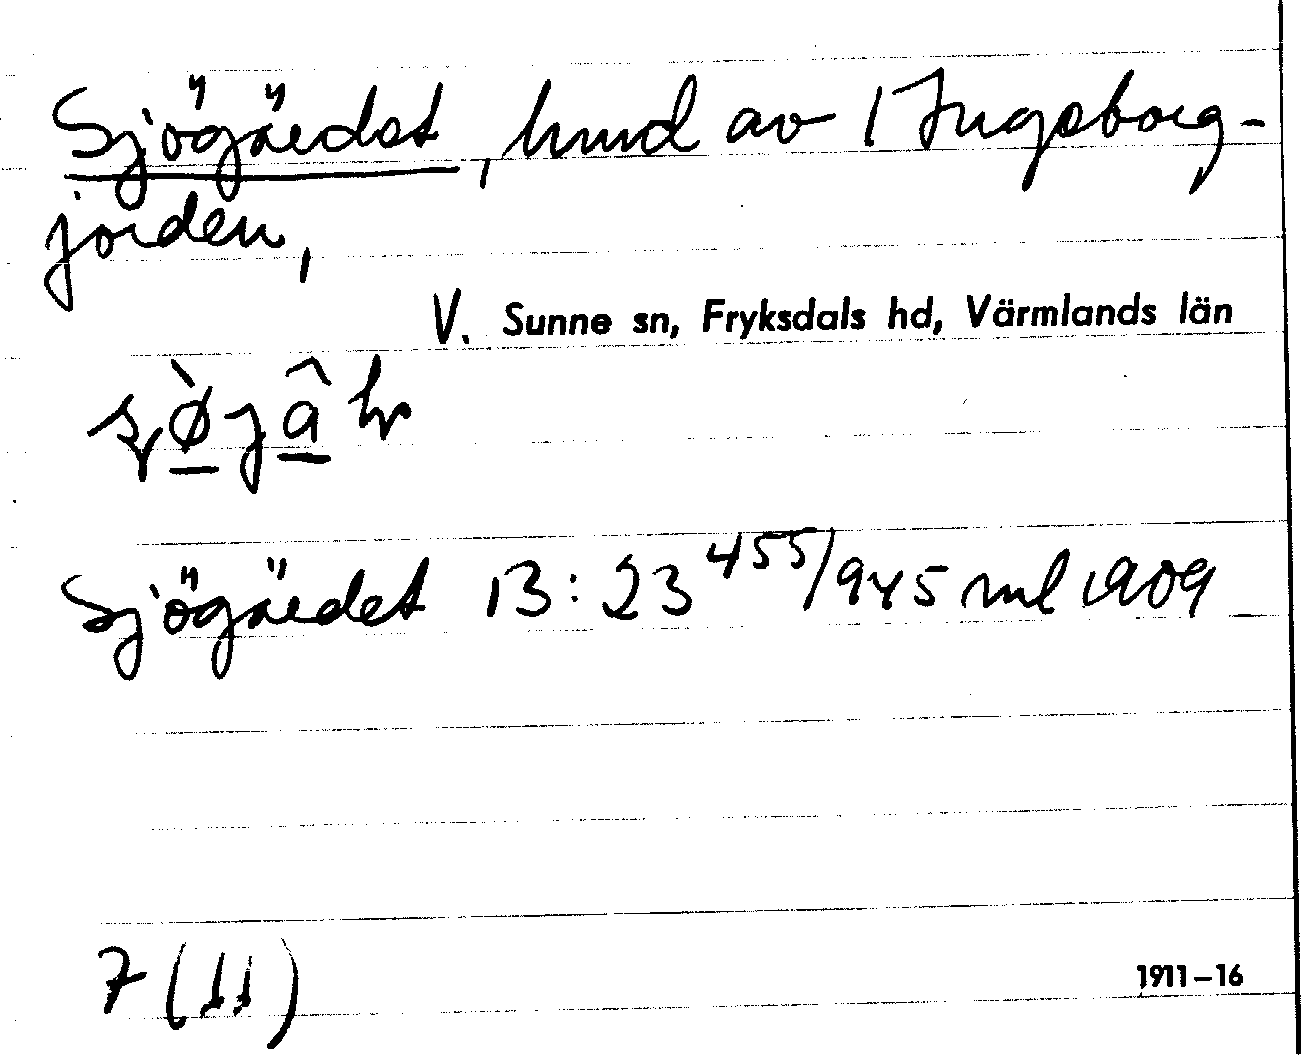 Sjögärdet, hmd av 1 Ingeborg-
jorden,
V. Sunne sn, Fryksdals hd, Värmlands län
Sjögärdet 13:23 455/945 ml 1909
7 (11)
1911–16